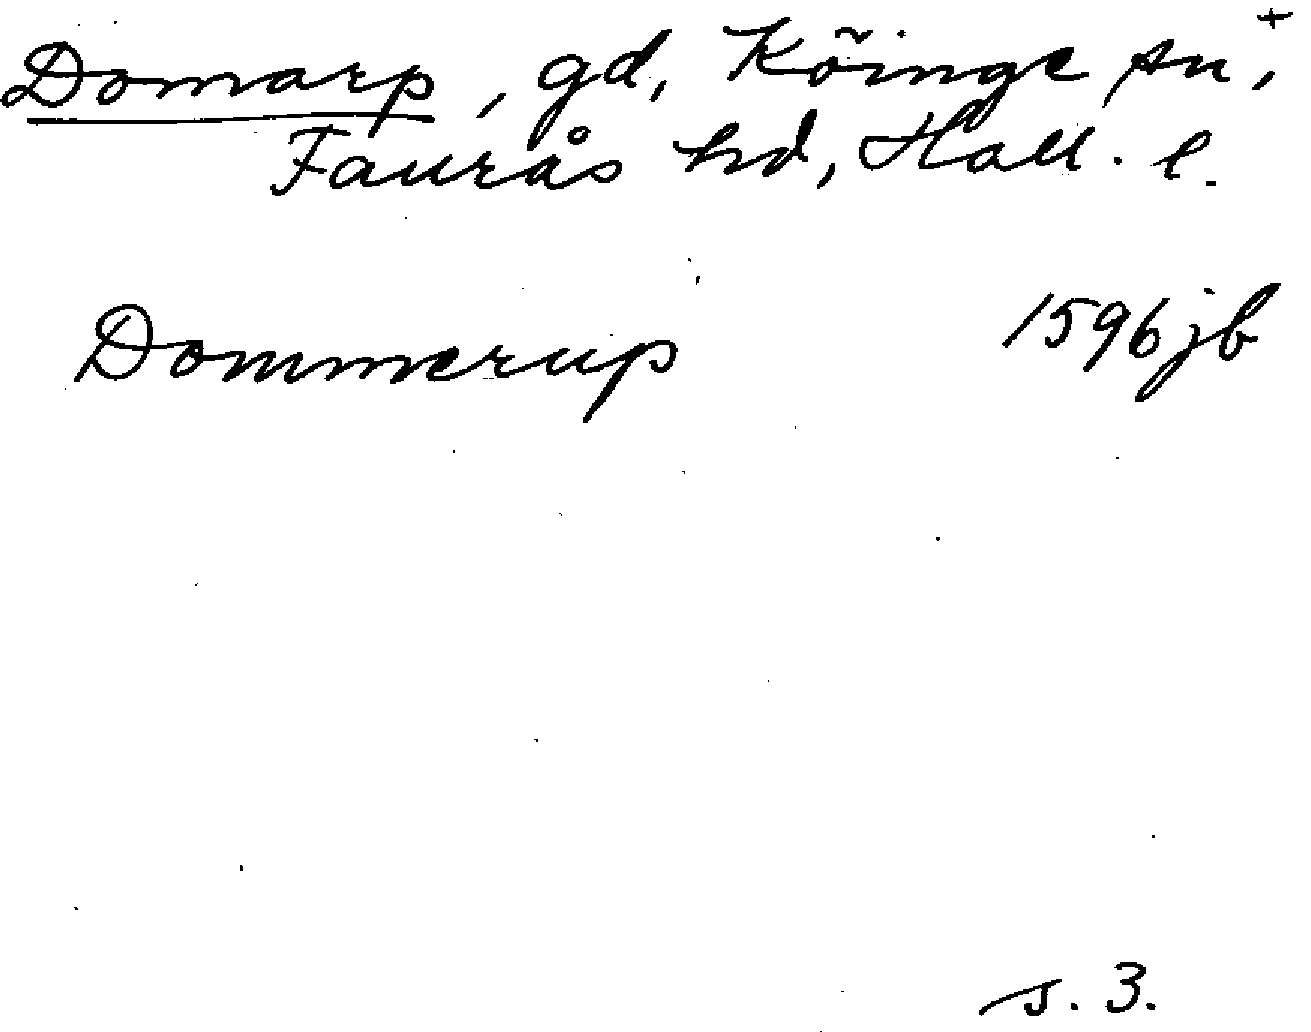 Domarp, gd, Köinge sn, +
Faurås hd, Hall. l.
Dommerup 1596 jb
s. 3.